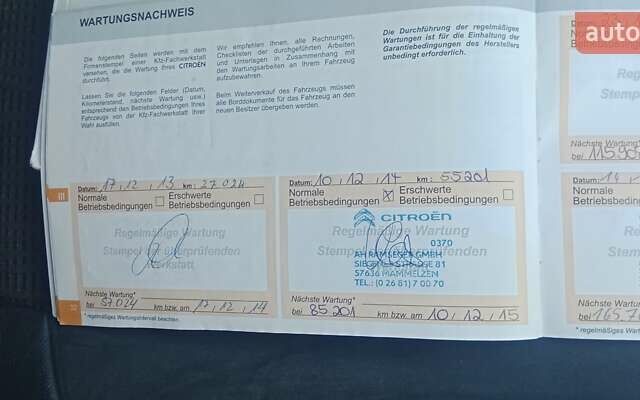 WARTUNGSNACHWEIS
Die folgenden Seiten werden mit dem
Firmenstempel einer Kfz-Fachwerkstatt
versehen, die die Wartung Ihres CITROËN
durchführt.
Lassen Sie die folgenden Felder (Datum,
Kilometerstand, nächste Wartung usw.)
entsprechend den Betriebsbedingungen Ihres
Fahrzeugs von der Kfz-Fachwerkstatt Ihrer
Wahl ausfüllen.
Wir empfehlen Ihnen, alle Rechnungen,
Checklisten der durchgeführten Arbeiten
und Unterlagen in Zusammenhang mit
den Wartungsarbeiten an Ihrem Fahrzeug
aufzubewahren.
Beim Weiterverkauf des Fahrzeugs müssen
alle Borddokumente für das Fahrzeug an den
neuen Besitzer übergeben werden.
Die Durchführung der regelmäßigen
Wartungen ist für die Einhaltung der
Garantiebedingungen des Herstellers
unbedingt erforderlich.
auto
Nächste Wartung*
bei 115.90
Datum: 17.12.13 km: 27.024
Normale Betriebsbedingungen
Erschwerte Betriebsbedingungen
Regelmäßige Wartung
Stempel der überprüfenden
Werkstatt
Nächste Wartung*
bei 57.024 km bzw. am 17.12.14
* regelmäßiges Wartungsintervall beachten.
Datum: 10.12.14 km: 55201
Normale Betriebsbedingungen X
Erschwerte Betriebsbedingungen
CITROËN
Regelmäßige Wartung
0370
Stempel
AH RAMSEGER GMBH
SIEGENER STRASSE 81
57636 MAMMELZEN
TEL.: (0 26 81) 7 00 70
Nächste Wartung*
bei 85.201 km bzw. am 10.12.15
Datum: 14
Nächste Wartung*
bei 165.7